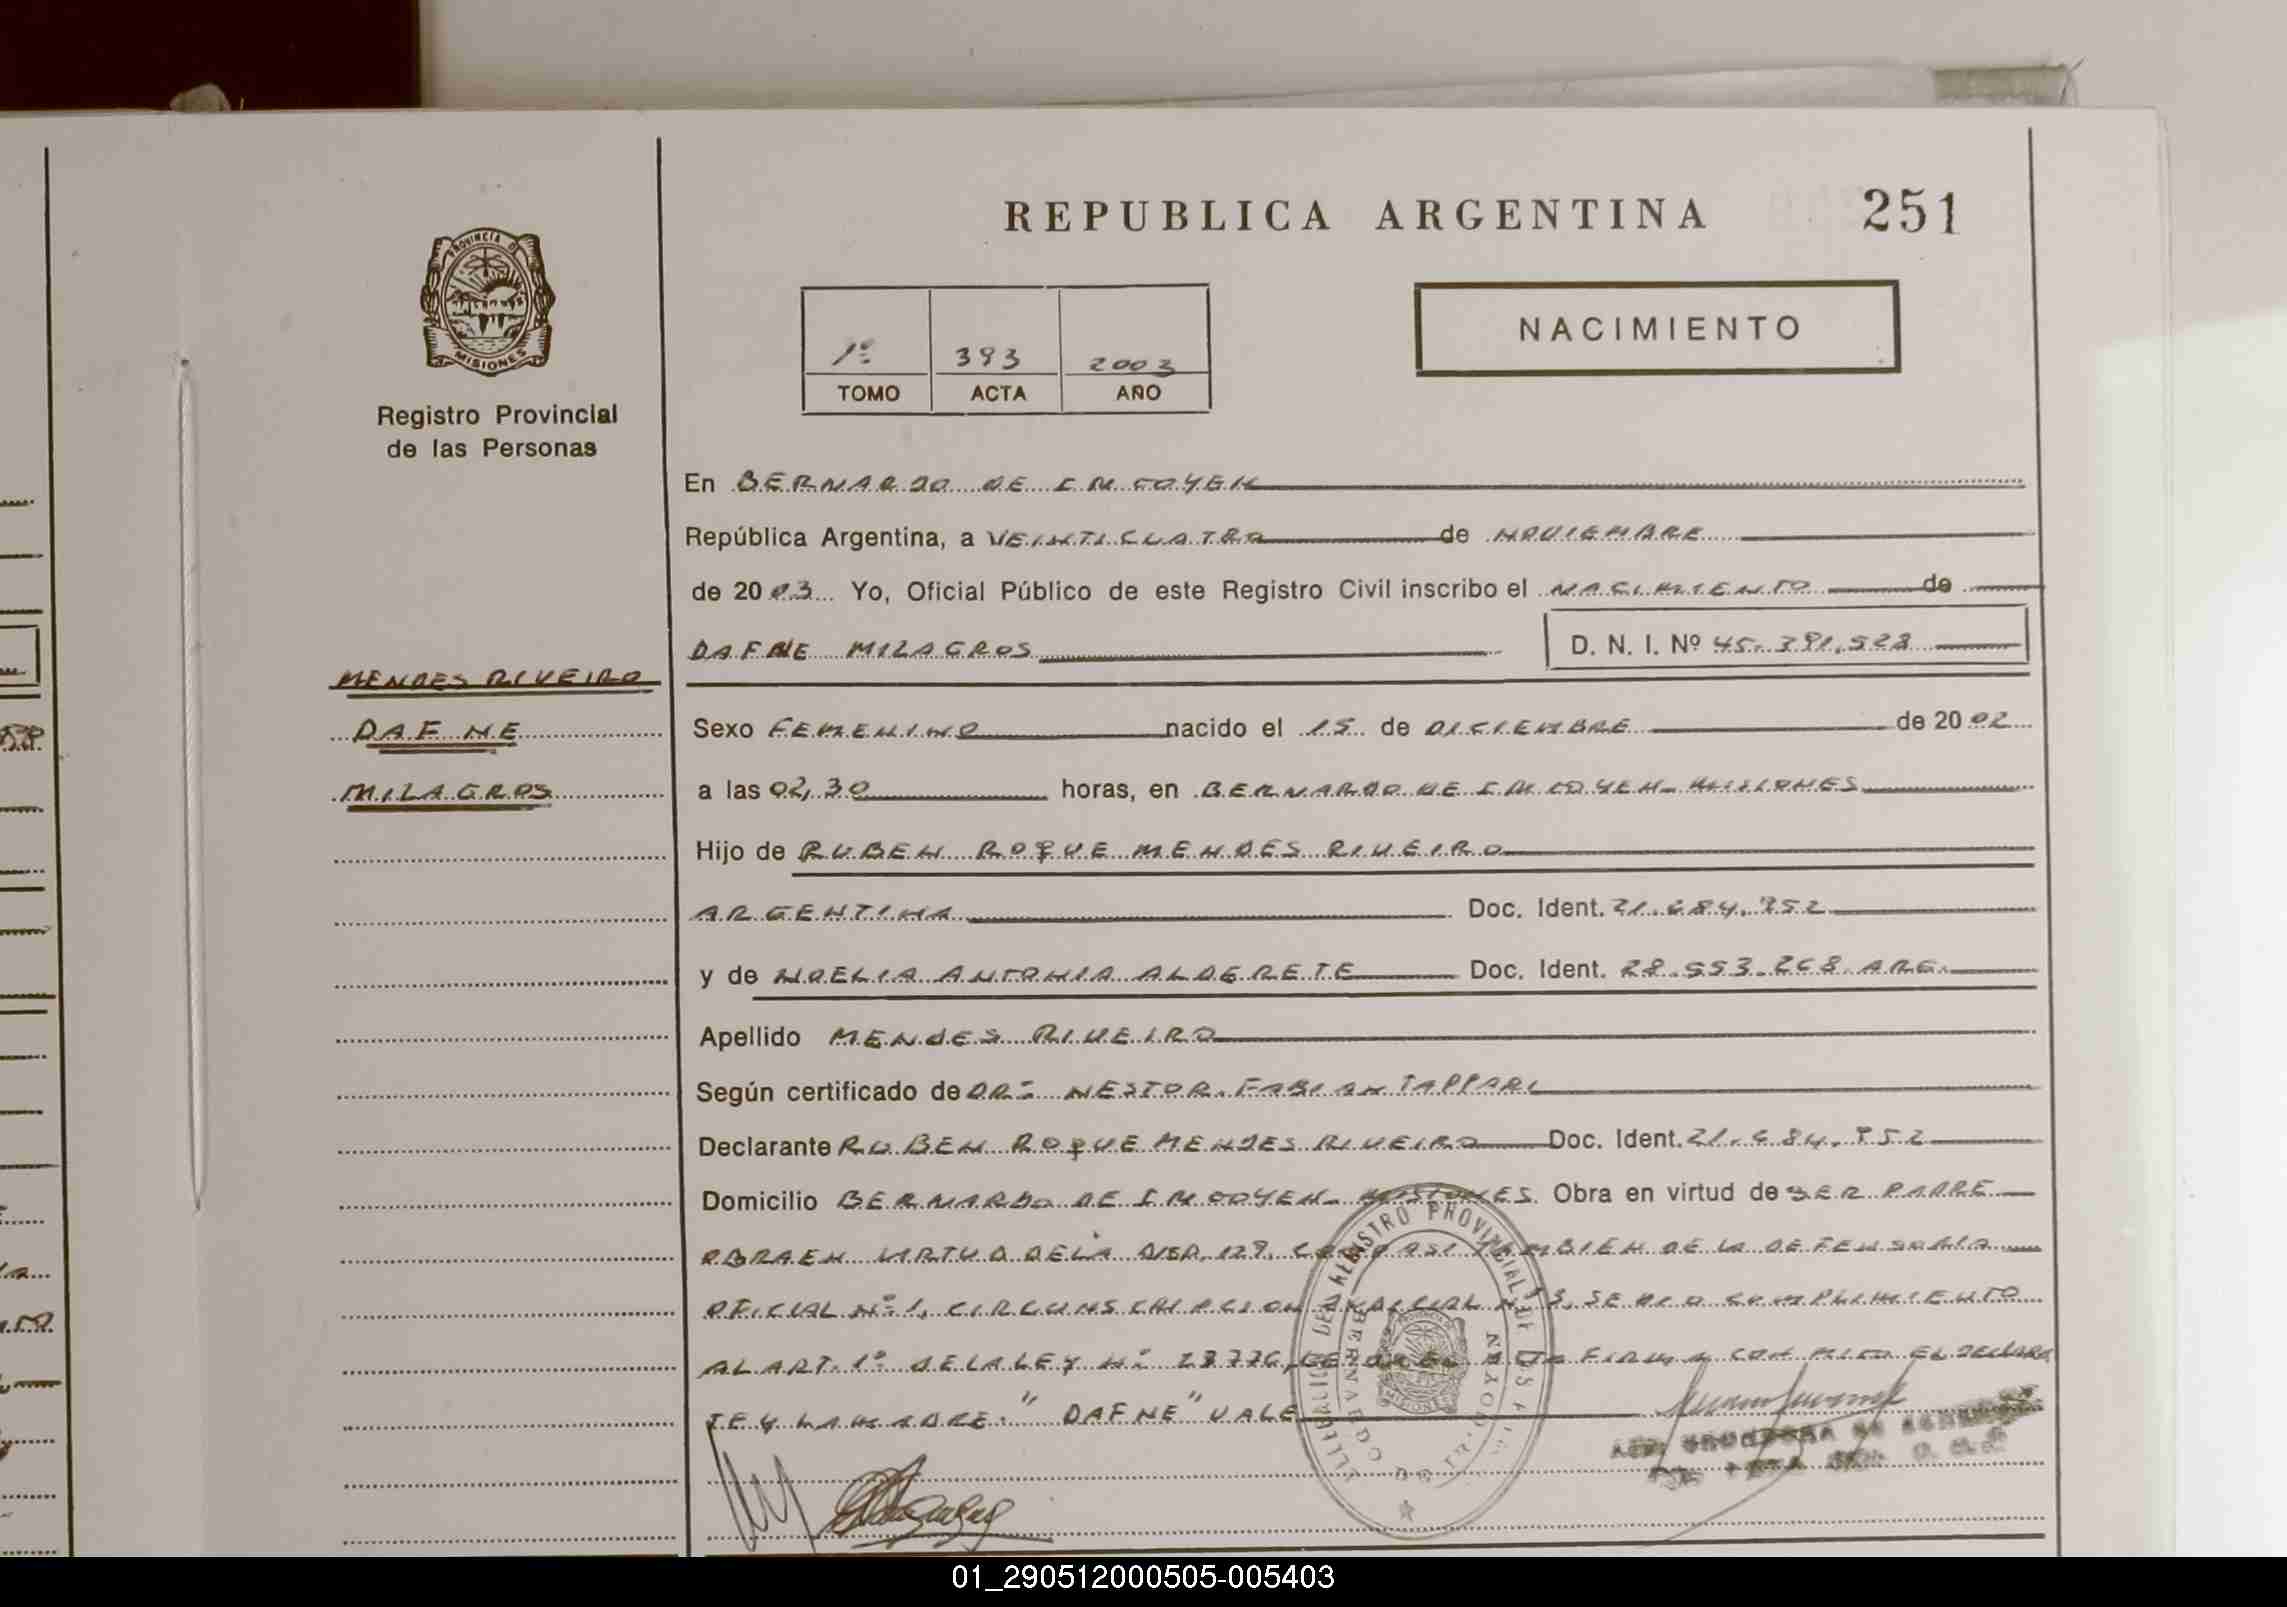 REPUBLICA ARGENTINA
251
PROVINCIA DE
MISIONES
Registro Provincial
de las Personas
1º 393 2003
TOMO ACTA AÑO
NACIMIENTO
En BERNARDO DE IRIGOYEN
República Argentina, a VEINTICUATRO de NOVIEMBRE
de 2003 Yo, Oficial Público de este Registro Civil inscribo el NACIMIENTO de
DAFNE MILAGROS D. N. I. Nº 45.391.528
MENDES RIVEIRO
DAFNE
MILAGROS
Sexo FEMENINO nacido el 15 de DICIEMBRE de 2002
a las 02,30 horas, en BERNARDO DE IRIGOYEN - MISIONES
Hijo de RUBEN ROQUE MENDES RIVEIRO
ARGENTINA Doc. Ident. 21.684.952
y de NOELIA ANTONIA ALDERETE Doc. Ident. 28.553.268 ARG.
Apellido MENDES RIVEIRO
Según certificado de DR: NESTOR FABIAN TAPPARI
Declarante RUBEN ROQUE MENDES RIVEIRO Doc. Ident. 21.684.952
Domicilio BERNARDO DE IRIGOYEN - MISIONES Obra en virtud de SER PADRE
OBRA EN VIRTUD DE LA DISP. 129, COMO ASI TAMBIEN DE LA DEFENSORIA
OFICIAL Nº 1, CIRCUNSCRIPCION JUDICIAL Nº 3, SE DIO COMPLIMIENTO
AL ART. 1º DE LA LEY Nº ACTA FIRMA CONMIGO EL DECLARA
TE Y LA MADRE. "DAFNE" VALE
REGISTRO PROVINCIAL DE LAS
01_290512000505-005403